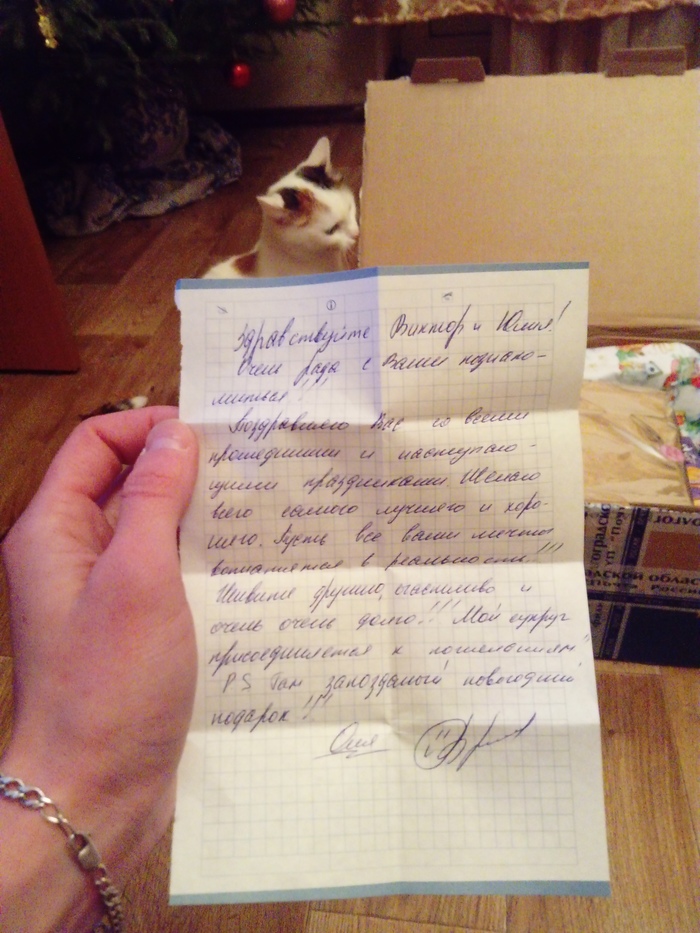 Здравствуйте Виктор и Юлия!
Очень рада с Вами познако-
миться!!!
Поздравляю Вас со всеми
прошедшими и наступаю-
щими праздниками. Желаю
всего самого лучшего и хоро-
шего. Пусть все ваши мечты
воплотятся в реальность!!!
Живите дружно, счастливо и
очень очень долго!!! Мой супруг
присоединяется к пожеланиям
PS Там запоздалый новогодний
подарок!!!
Оля
дской области
Почта России